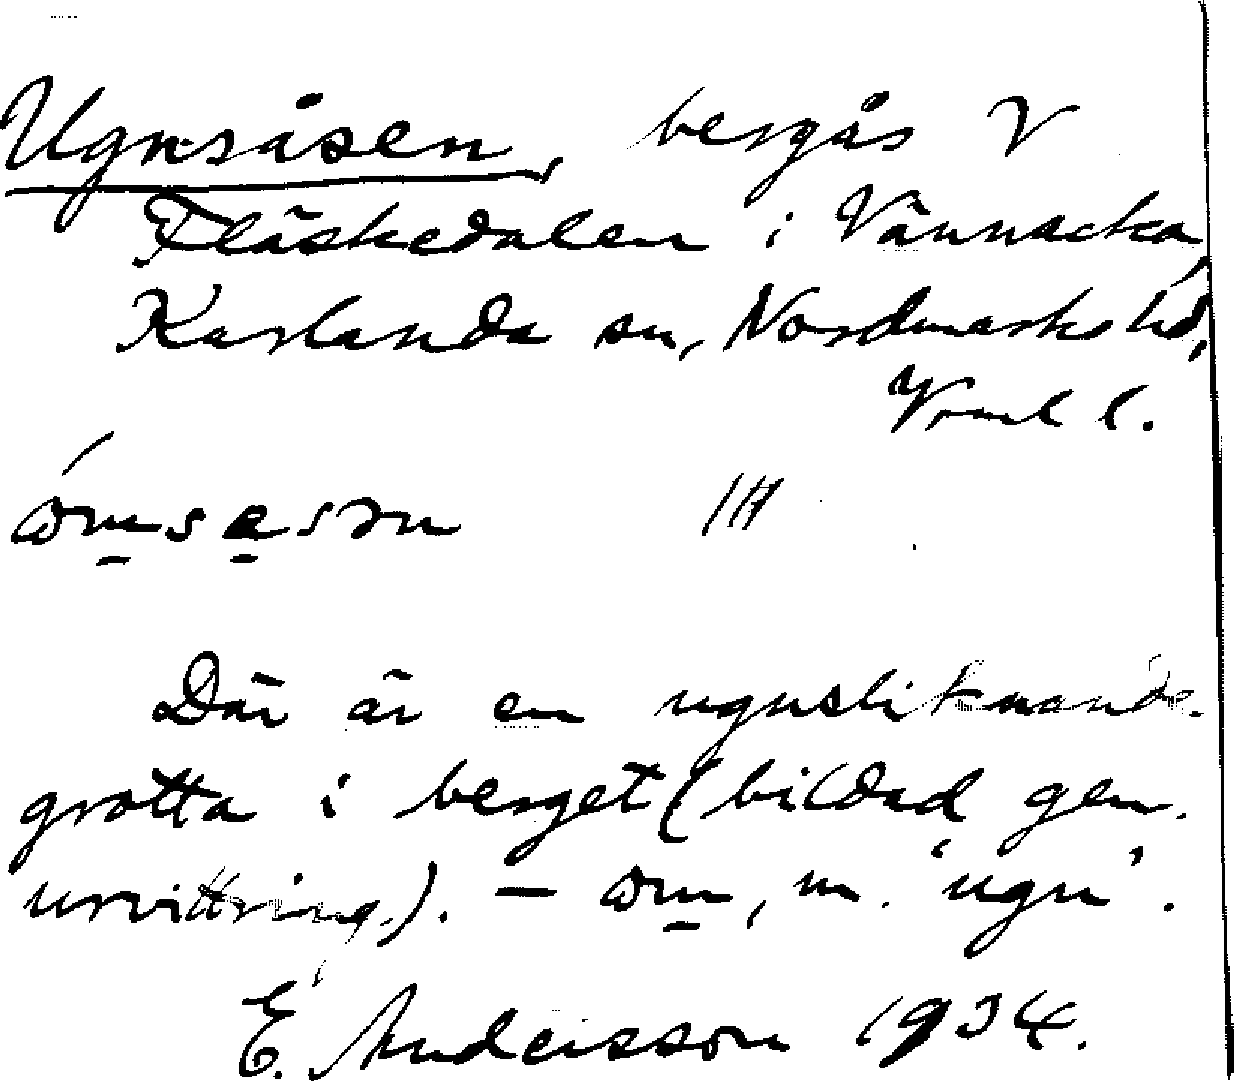 Ugnsåsen, bergås V
Fläskedalen i Vännacka,
Karlanda sn, Nordmarks hd,
Vrml l.
Där är en ugnsliknande
grotta i berget (bildad gm.
urvittring). – m. 'ugn'.
E. Andersson 1934.